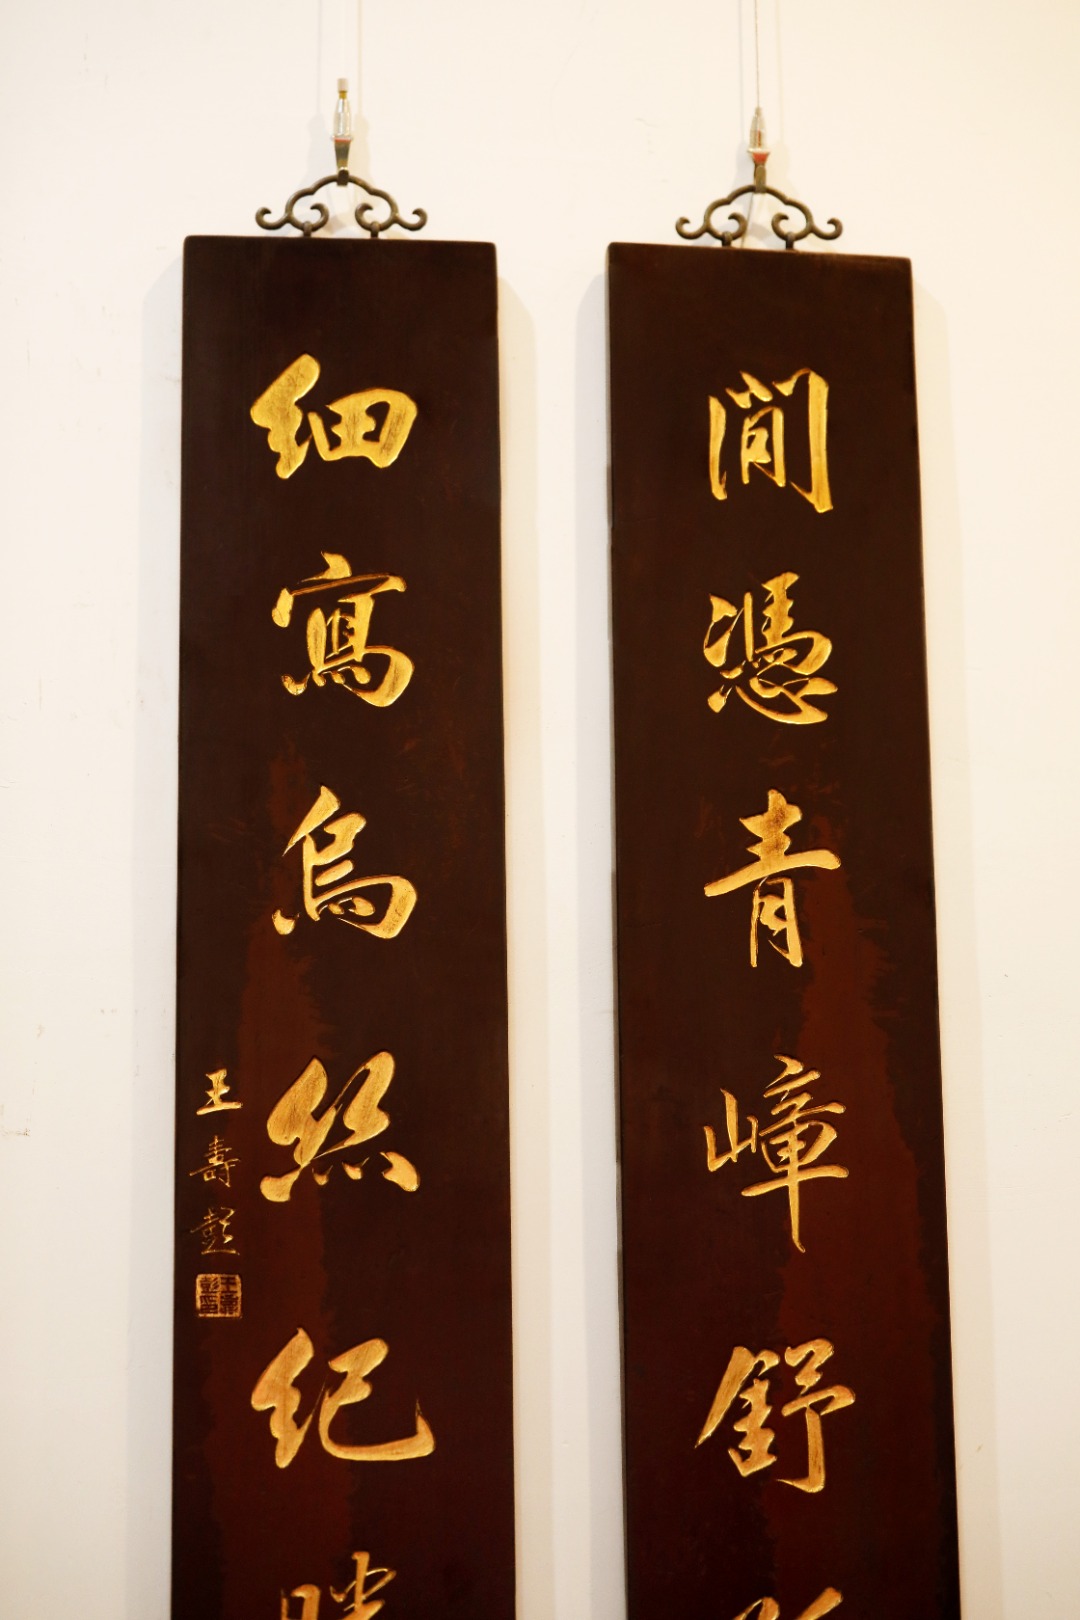 閒憑青嶂舒
細寫烏絲紀
王壽彭